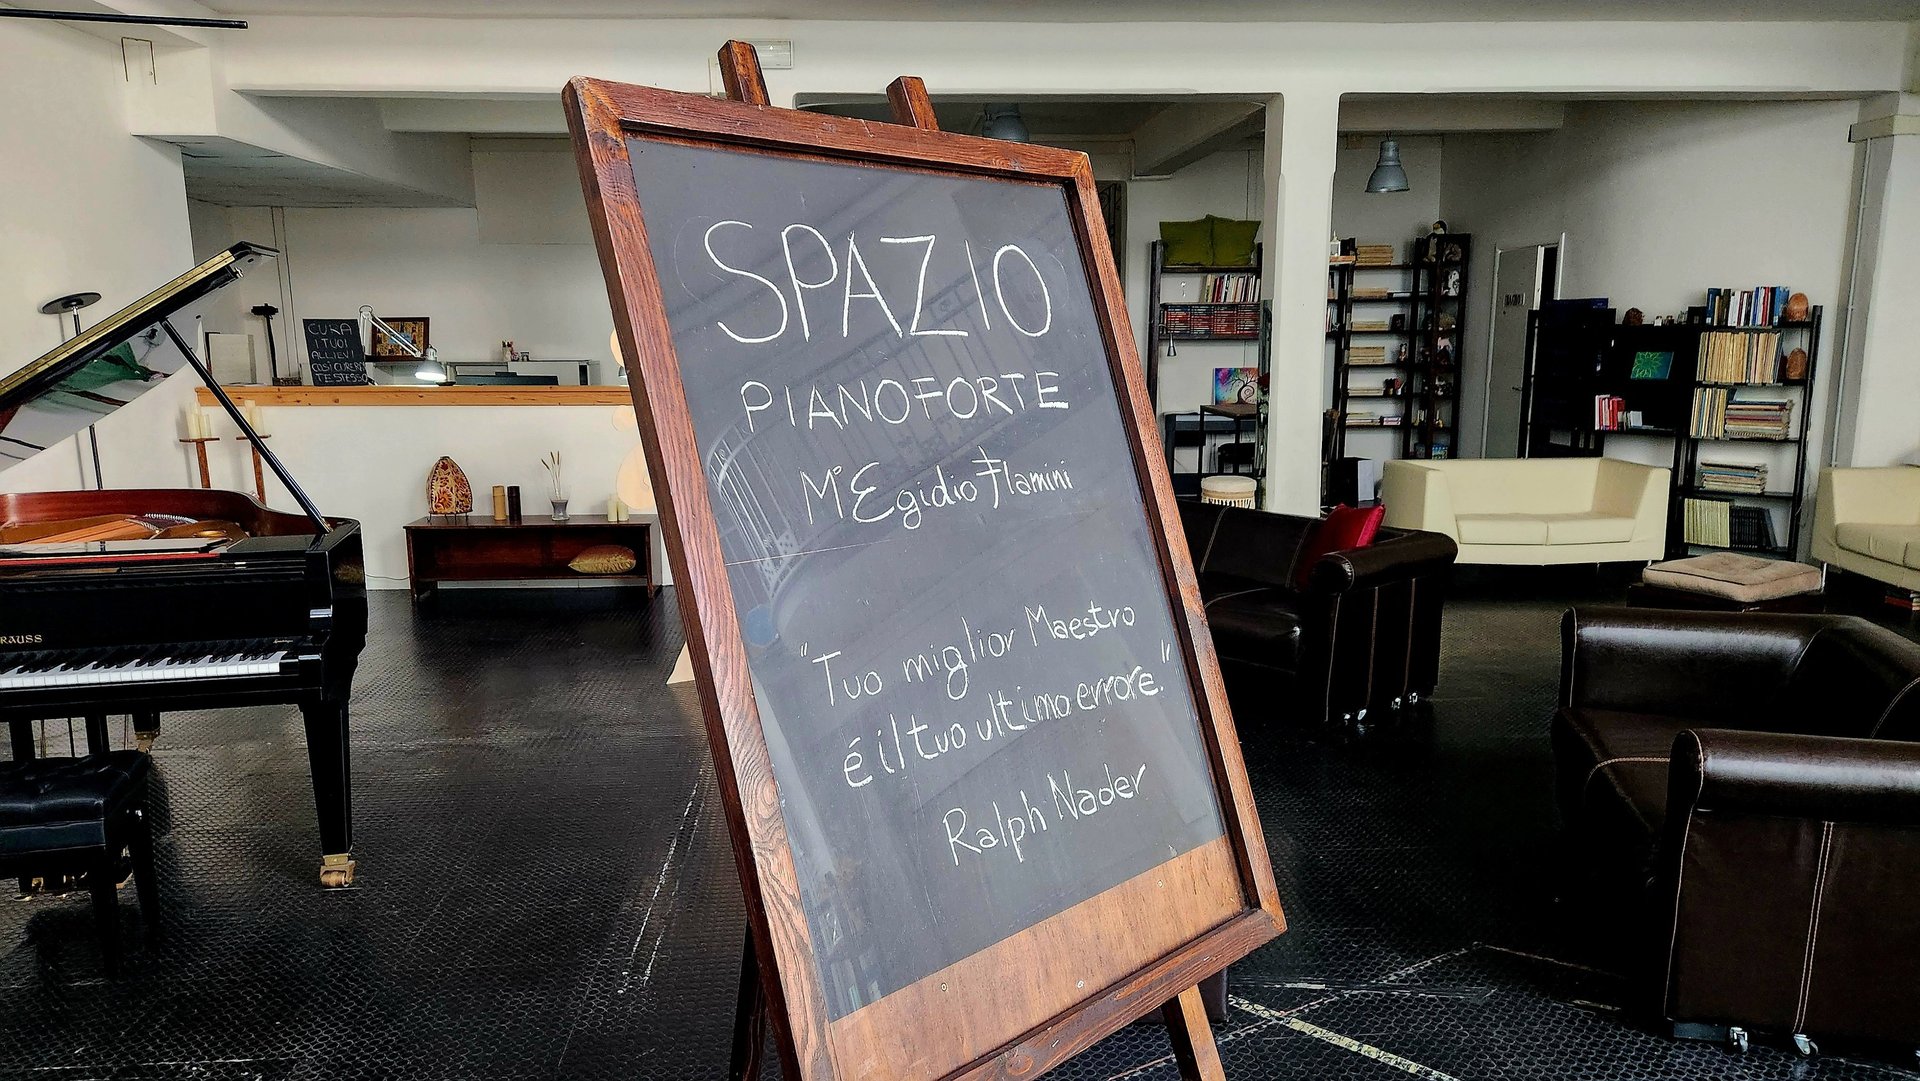 SPAZIO
PIANOFORTE
M° Egidio Flamini
"Tuo miglior Maestro
é il tuo ultimo errore."
Ralph Nader
CURA
I TUOI
ALLIEVI
COSÌ CURERAI
TE STESSO
RAUSS